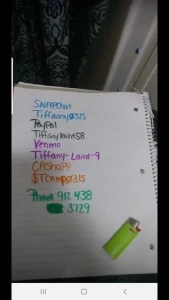 SNAPChat
Tiffaany0315
PayPal
Tiffanylaird58
Venmo
Tiffany-Laird-9
CAShAPP
$TCRMP0315
Phone# 912 438
3729